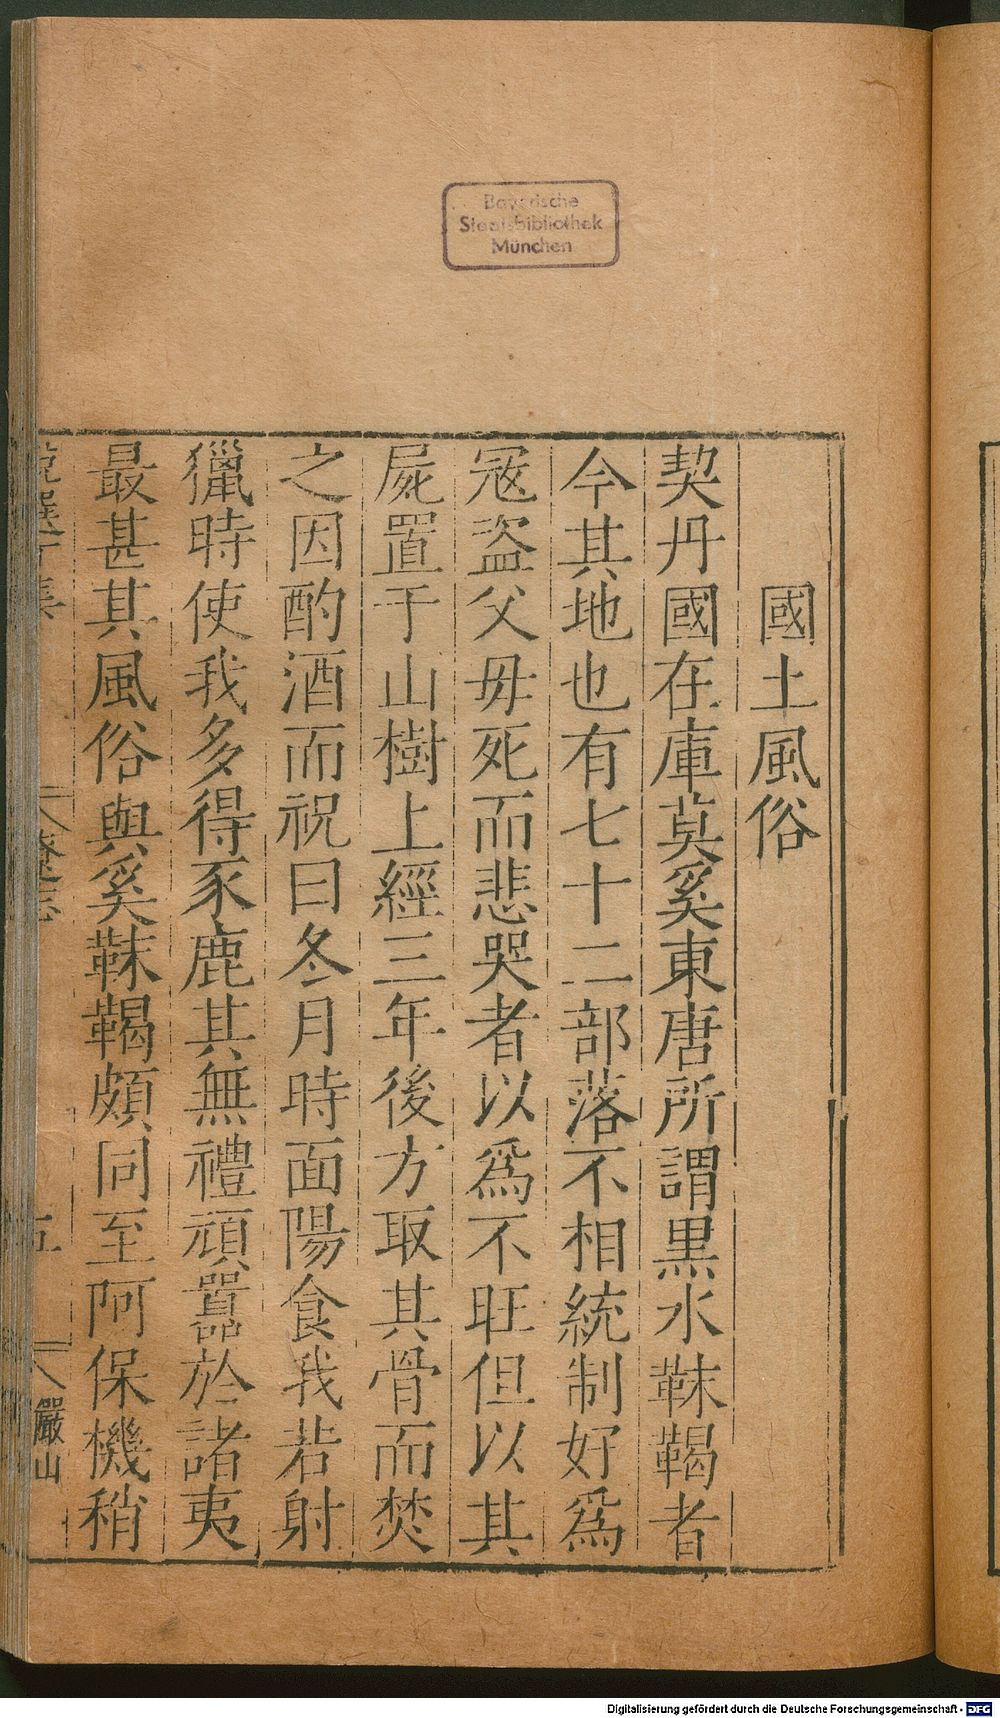 Bayerische
Staatsbibliothek
München
國土風俗
契丹國在庫莫奚東唐所謂黒水靺鞨者
今其地也有七十二部落不相統制好爲
冦盗父毋死而悲哭者以爲不旺但以其
屍置于山樹上經三年後方取其骨而焚
之因酌酒而祝曰冬月時面陽食我若射
獵時使我多得豕鹿其無禮頑嚚於諸夷
最甚其風俗與奚靺鞨頗同至阿保機稍
遼志
五
嚴山
Digitalisierung gefördert durch die Deutsche Forschungsgemeinschaft - DFG